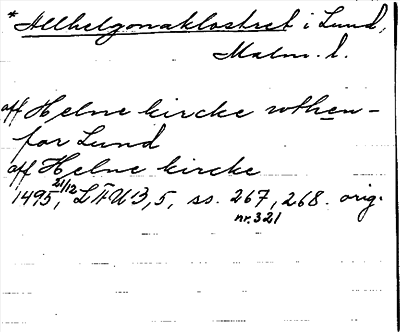 *Allhelgonaklostret i Lund,
Malm. l.
aff Helne kircke wthen-
for Lund
aff Helne kircke
1495, 21/12 LÄUB, 5, ss. 267, 268. orig.
nr. 321